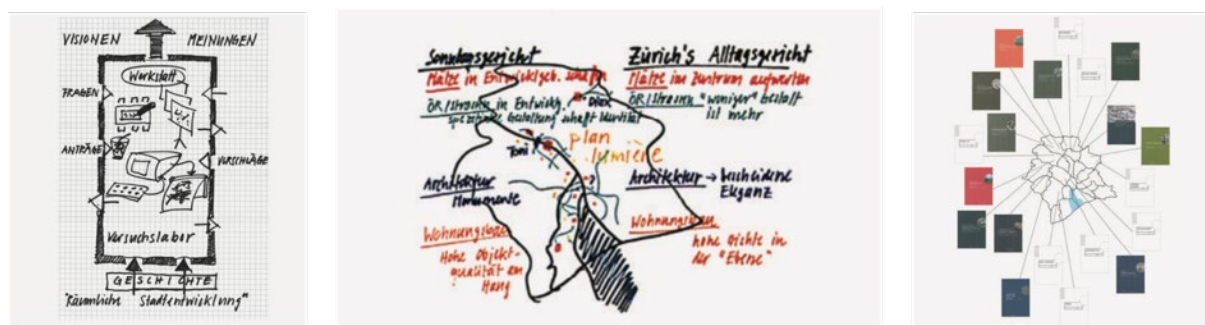 VISIONEN MEINUNGEN
Werkstatt
FRAGEN
ANTRÄGE
VORSCHLÄGE
Versuchslabor
GESCHICHTE
"Räumliche Stadtentwicklung"
Sonntagsgericht
Plätze in Entwicklgeb. schaffen
ÖR/Strassen in Entwickl.
spezifische Gestaltung schafft Identität
Toni
Diax
plan
lumière
Architektur
Monumente
Wohnungsbau
Hohe Objekt-
qualität am
Hang
Zürich's Alltagsgericht
Plätze im Zentrum aufwerten
ÖR/Strassen "weniger" Gestalt
ist mehr
Architektur → bescheidene
Eleganz
Wohnungsbau
hohe Dichte in
der "Ebene"